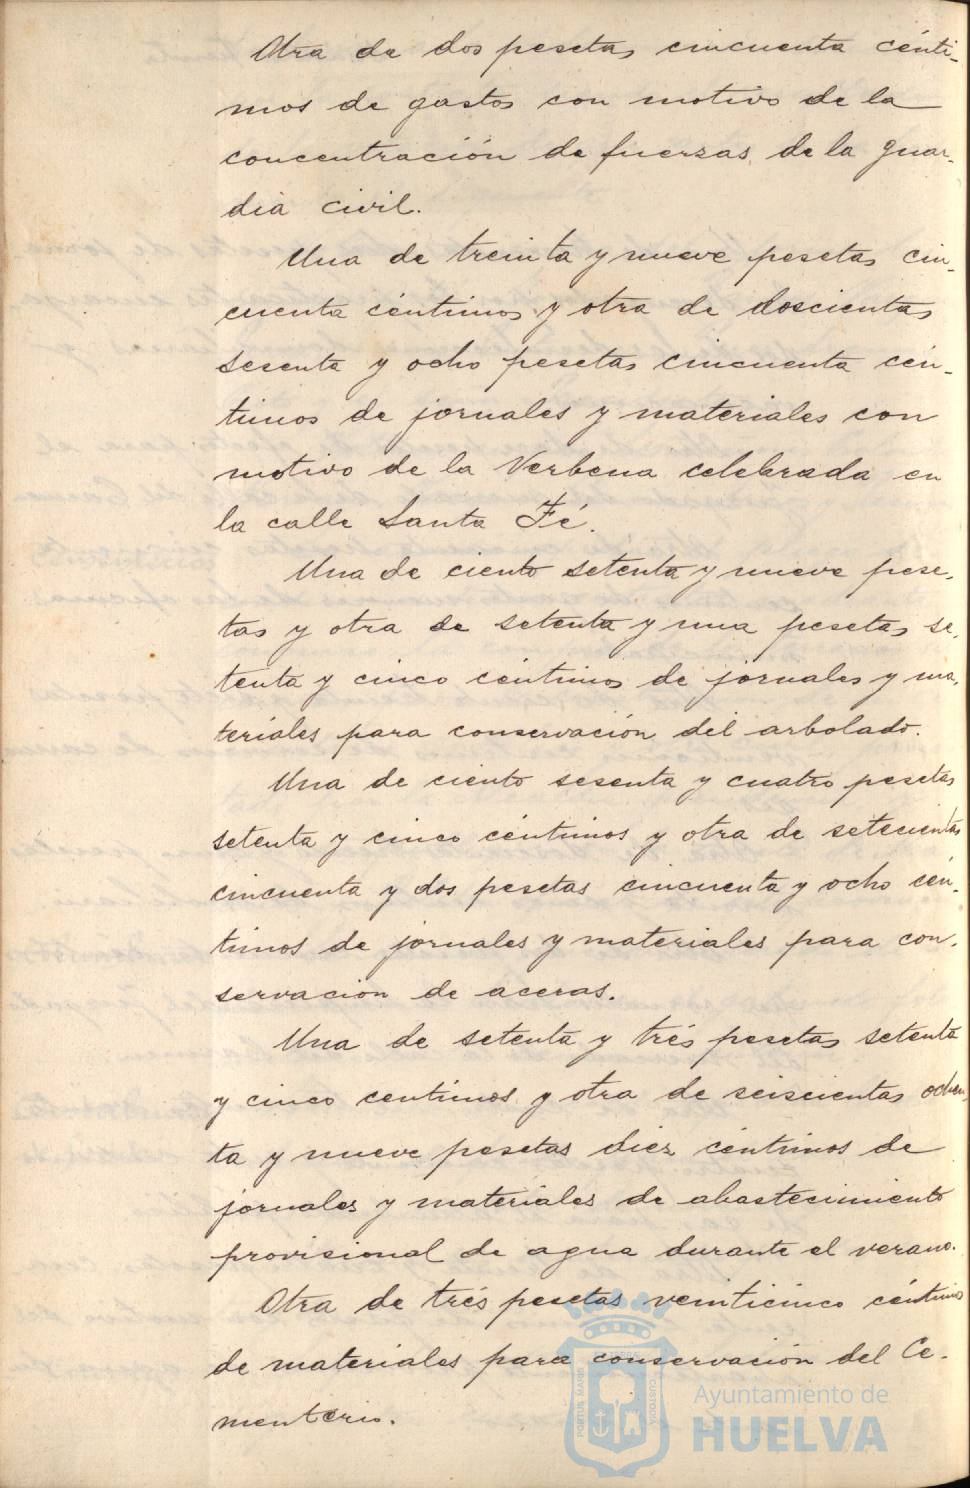 Otra de dos pesetas cincuenta cénti-
mos de gastos con motivo de la
concentración de fuerzas de la guar-
dia civil.
Una de treinta y nueve pesetas cin-
cuenta céntimos y otra de doscientas
sesenta y ocho pesetas cincuenta cén-
timos de jornales y materiales con
motivo de la Verbena celebrada en
la calle Santa Fé.
Una de ciento setenta y nueve pese-
tas y otra de setenta y una pesetas se-
tenta y cinco céntimos de jornales y ma-
teriales para conservación del arbolado.
Una de ciento sesenta y cuatro pesetas
setenta y cinco céntimos y otra de setecientas
cincuenta y dos pesetas cincuenta y ocho cén-
timos de jornales y materiales para con-
servacion de aceras.
Una de setenta y trés pesetas setenta
y cinco centimos y otra de seiscientas ochen
ta y nueve pesetas diez céntimos de
jornales y materiales de abastecimiento
provisional de agua durante el verano.
Otra de trés pesetas veinticinco céntimos
de materiales para conservación del Ce-
menterio.
PORTUS MARIS
CUSTODIA
Ayuntamiento de
HUELVA